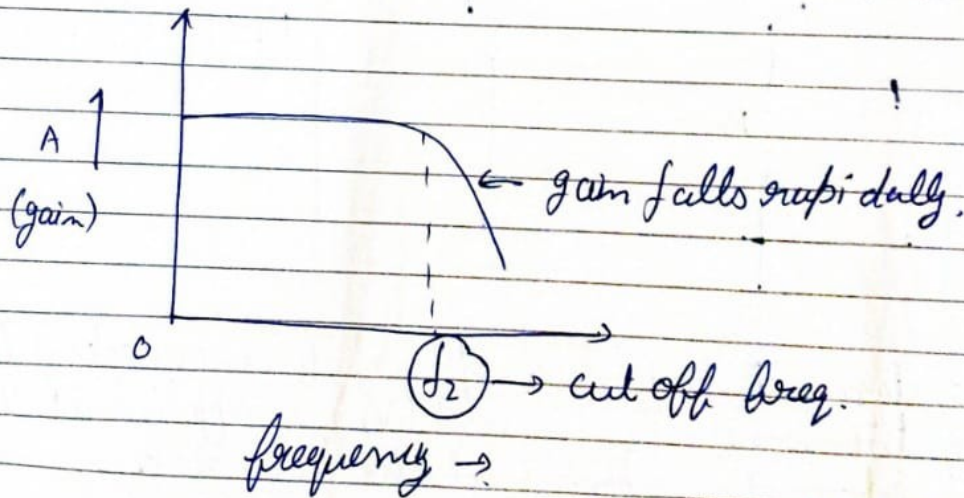 A
(gain)
← gain falls rapidally.
0
f₂ → cut off freq.
frequency →